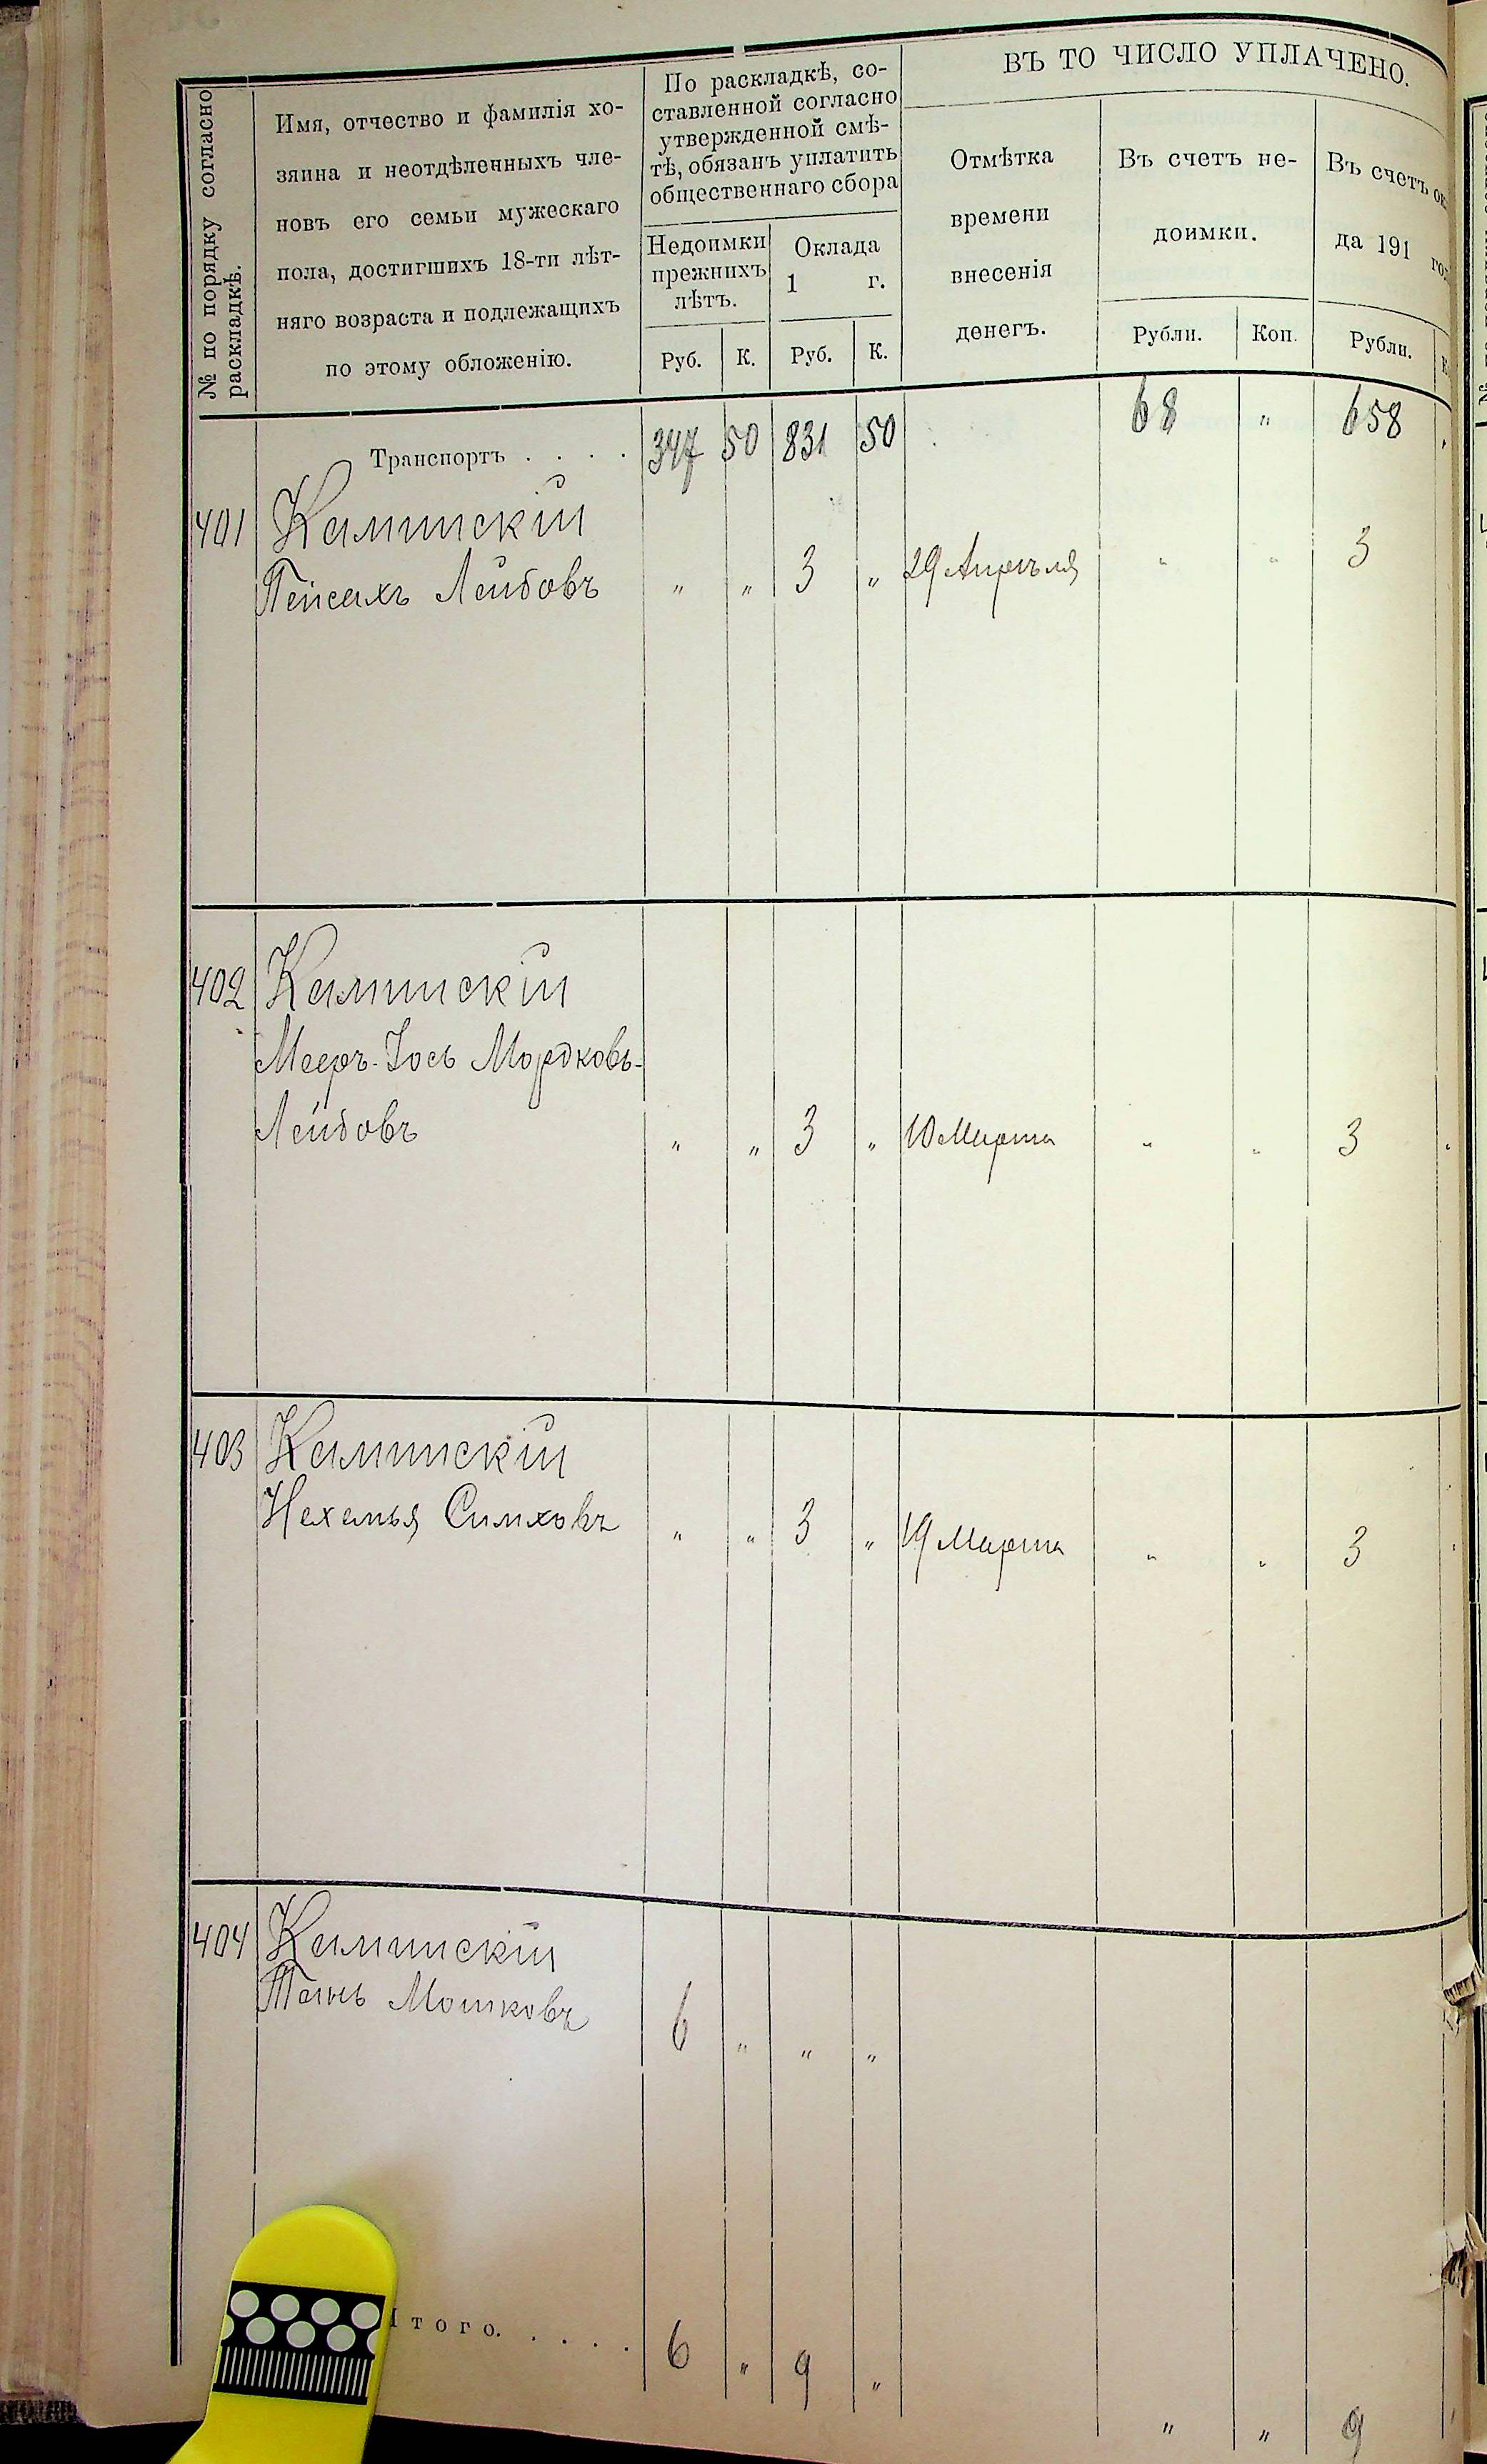 № по порядку согласно
раскладкѣ.
Имя, отчество и фамилія хо-
зяина и неотдѣленныхъ чле-
новъ его семьи мужескаго
пола, достигшихъ 18-ти лѣт-
няго возраста и подлежащихъ
по этому обложенію.
По раскладкѣ, со-
ставленной согласно
утвержденной смѣ-
тѣ, обязанъ уплатить
общественнаго сбора
Недоимки
прежнихъ
лѣтъ.
Оклада
1 г.
Руб. К. Руб. К.
ВЪ ТО ЧИСЛО УПЛАЧЕНО.
Отмѣтка
времени
внесенія
денегъ.
Въ счетъ не-
доимки.
Рубли. Коп.
Въ счетъ ок
да 191 го
Рубли. К
Транспортъ . . . . 347 50 831 50 68 " 658
401 Каминскій
Пейсахъ Лейбовъ " " 3 " 29 Апрѣля " " 3
402 Каминскій
Мееръ-Іось Мордковъ-
Лейбовъ " " 3 " 10 Марта " " 3
403 Каминскій
Нехемья Симховъ " " 3 " 19 Марта " " 3
404 Каминскій
Мошковъ 6 " " "
Итого. . . . . 6 " 9 " " " 9